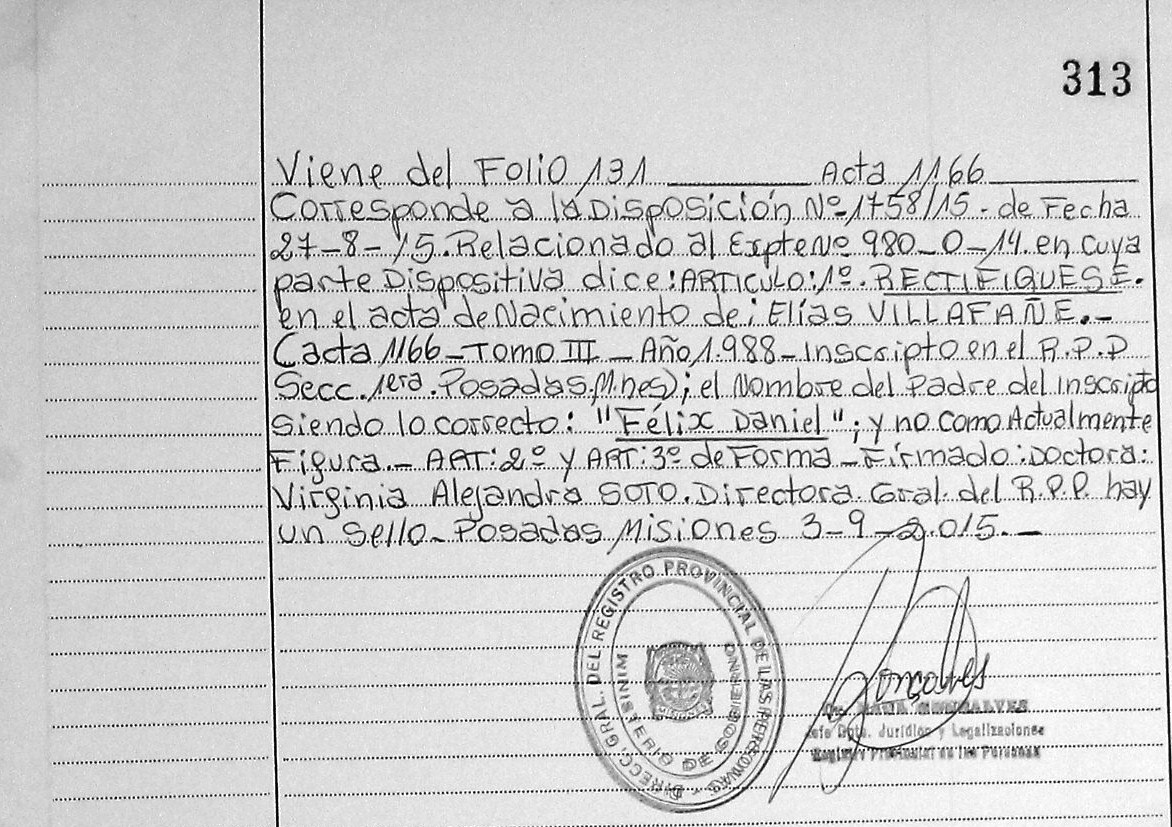 313
Viene del Folio 131 ______ Acta 1166 ______
Corresponde a la Disposición Nº 1758/15 - de Fecha
27-8-15. Relacionado al Expte Nº 980-0-14. en cuya
parte Dispositiva dice: ARTICULO: 1º. RECTIFIQUESE.
en el acta de Nacimiento de: Elías VILLAFAÑE.-
Cacta 1166 - Tomo III - Año 1.988 - Inscripto en el R.P.P
Secc. 1era. Posadas. Mnes); el Nombre del Padre del Inscripto
siendo lo correcto: "Félix Daniel"; y no como Actualmente
Figura.- ART: 2º y ART: 3º de Forma - Firmado: Doctora:
Virginia Alejandra SOTO. Directora Gral. del R.P.P. hay
un Sello - Posadas Misiones 3-9-2.015.-
DIRECC. GRAL. DEL REGISTRO PROVINCIAL DE LAS PERSONAS
MINISTERIO DE GOBIERNO
Gonçalves
GONCALVES
Jefe Dpto. Jurídico y Legalizaciones
Registro Provincial de las Personas